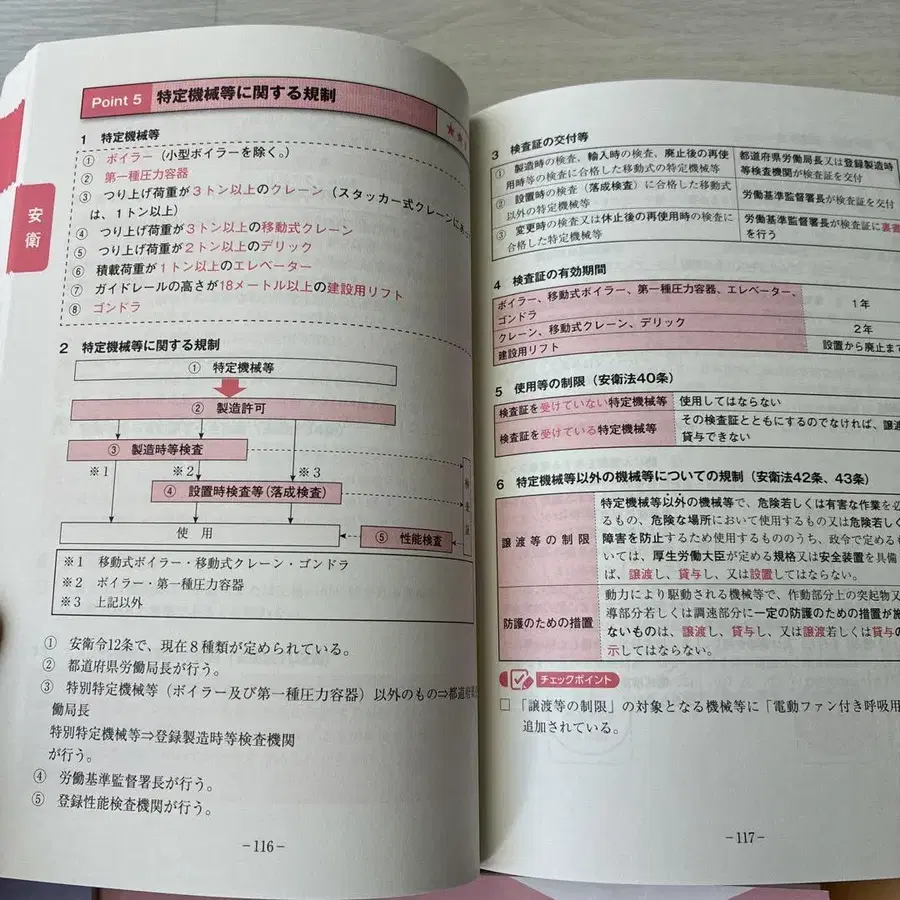 安衛
Point 5 特定機械等に関する規制
1 特定機械等
① ボイラー(小型ボイラーを除く。)
② 第一種圧力容器
③ つり上げ荷重が3トン以上のクレーン(スタッカー式クレーンにあっ
は、1トン以上)
④ つり上げ荷重が3トン以上の移動式クレーン
⑤ つり上げ荷重が2トン以上のデリック
⑥ 積載荷重が1トン以上のエレベーター
⑦ ガイドレールの高さが18メートル以上の建設用リフト
⑧ ゴンドラ
2 特定機械等に関する規制
① 特定機械等
② 製造許可
③ 製造時等検査
※1 ※2 ※3
④ 設置時検査等(落成検査)
検査証
使用
⑤ 性能検査
※1 移動式ボイラー・移動式クレーン・ゴンドラ
※2 ボイラー・第一種圧力容器
※3 上記以外
① 安衛令12条で、現在8種類が定められている。
② 都道府県労働局長が行う。
③ 特別特定機械等(ボイラー及び第一種圧力容器)以外のもの⇒都道府県
働局長
特別特定機械等⇒登録製造時等検査機関
が行う。
④ 労働基準監督署長が行う。
⑤ 登録性能検査機関が行う。
−116−
3 検査証の交付等
① 製造時の検査、輸入時の検査、廃止後の再使
用時等の検査に合格した移動式の特定機械等
都道府県労働局長又は登録製造時
等検査機関が検査証を交付
② 設置時の検査(落成検査)に合格した移動式
以外の特定機械等
労働基準監督署長が検査証を交付
③ 変更時の検査又は休止後の再使用時の検査に
合格した特定機械等
労働基準監督署長が検査証に裏書
を行う
4 検査証の有効期間
ボイラー、移動式ボイラー、第一種圧力容器、エレベーター、
ゴンドラ
1年
クレーン、移動式クレーン、デリック
2年
建設用リフト
設置から廃止まで
5 使用等の制限(安衛法40条)
検査証を受けていない特定機械等
使用してはならない
検査証を受けている特定機械等
その検査証とともにするのでなければ、譲渡
貸与できない
6 特定機械等以外の機械等についての規制(安衛法42条、43条)
譲渡等の制限
特定機械等以外の機械等で、危険若しくは有害な作業を必
るもの、危険な場所において使用するもの又は危険若しく
障害を防止するため使用するもののうち、政令で定めるも
いては、厚生労働大臣が定める規格又は安全装置を具備
ば、譲渡し、貸与し、又は設置してはならない。
防護のための措置
動力により駆動される機械等で、作動部分上の突起物又
導部分若しくは調速部分に一定の防護のための措置が施
ないものは、譲渡し、貸与し、又は譲渡若しくは貸与の
示してはならない。
チェックポイント
□ 「譲渡等の制限」の対象となる機械等に「電動ファン付き呼吸用
追加されている。
−117−